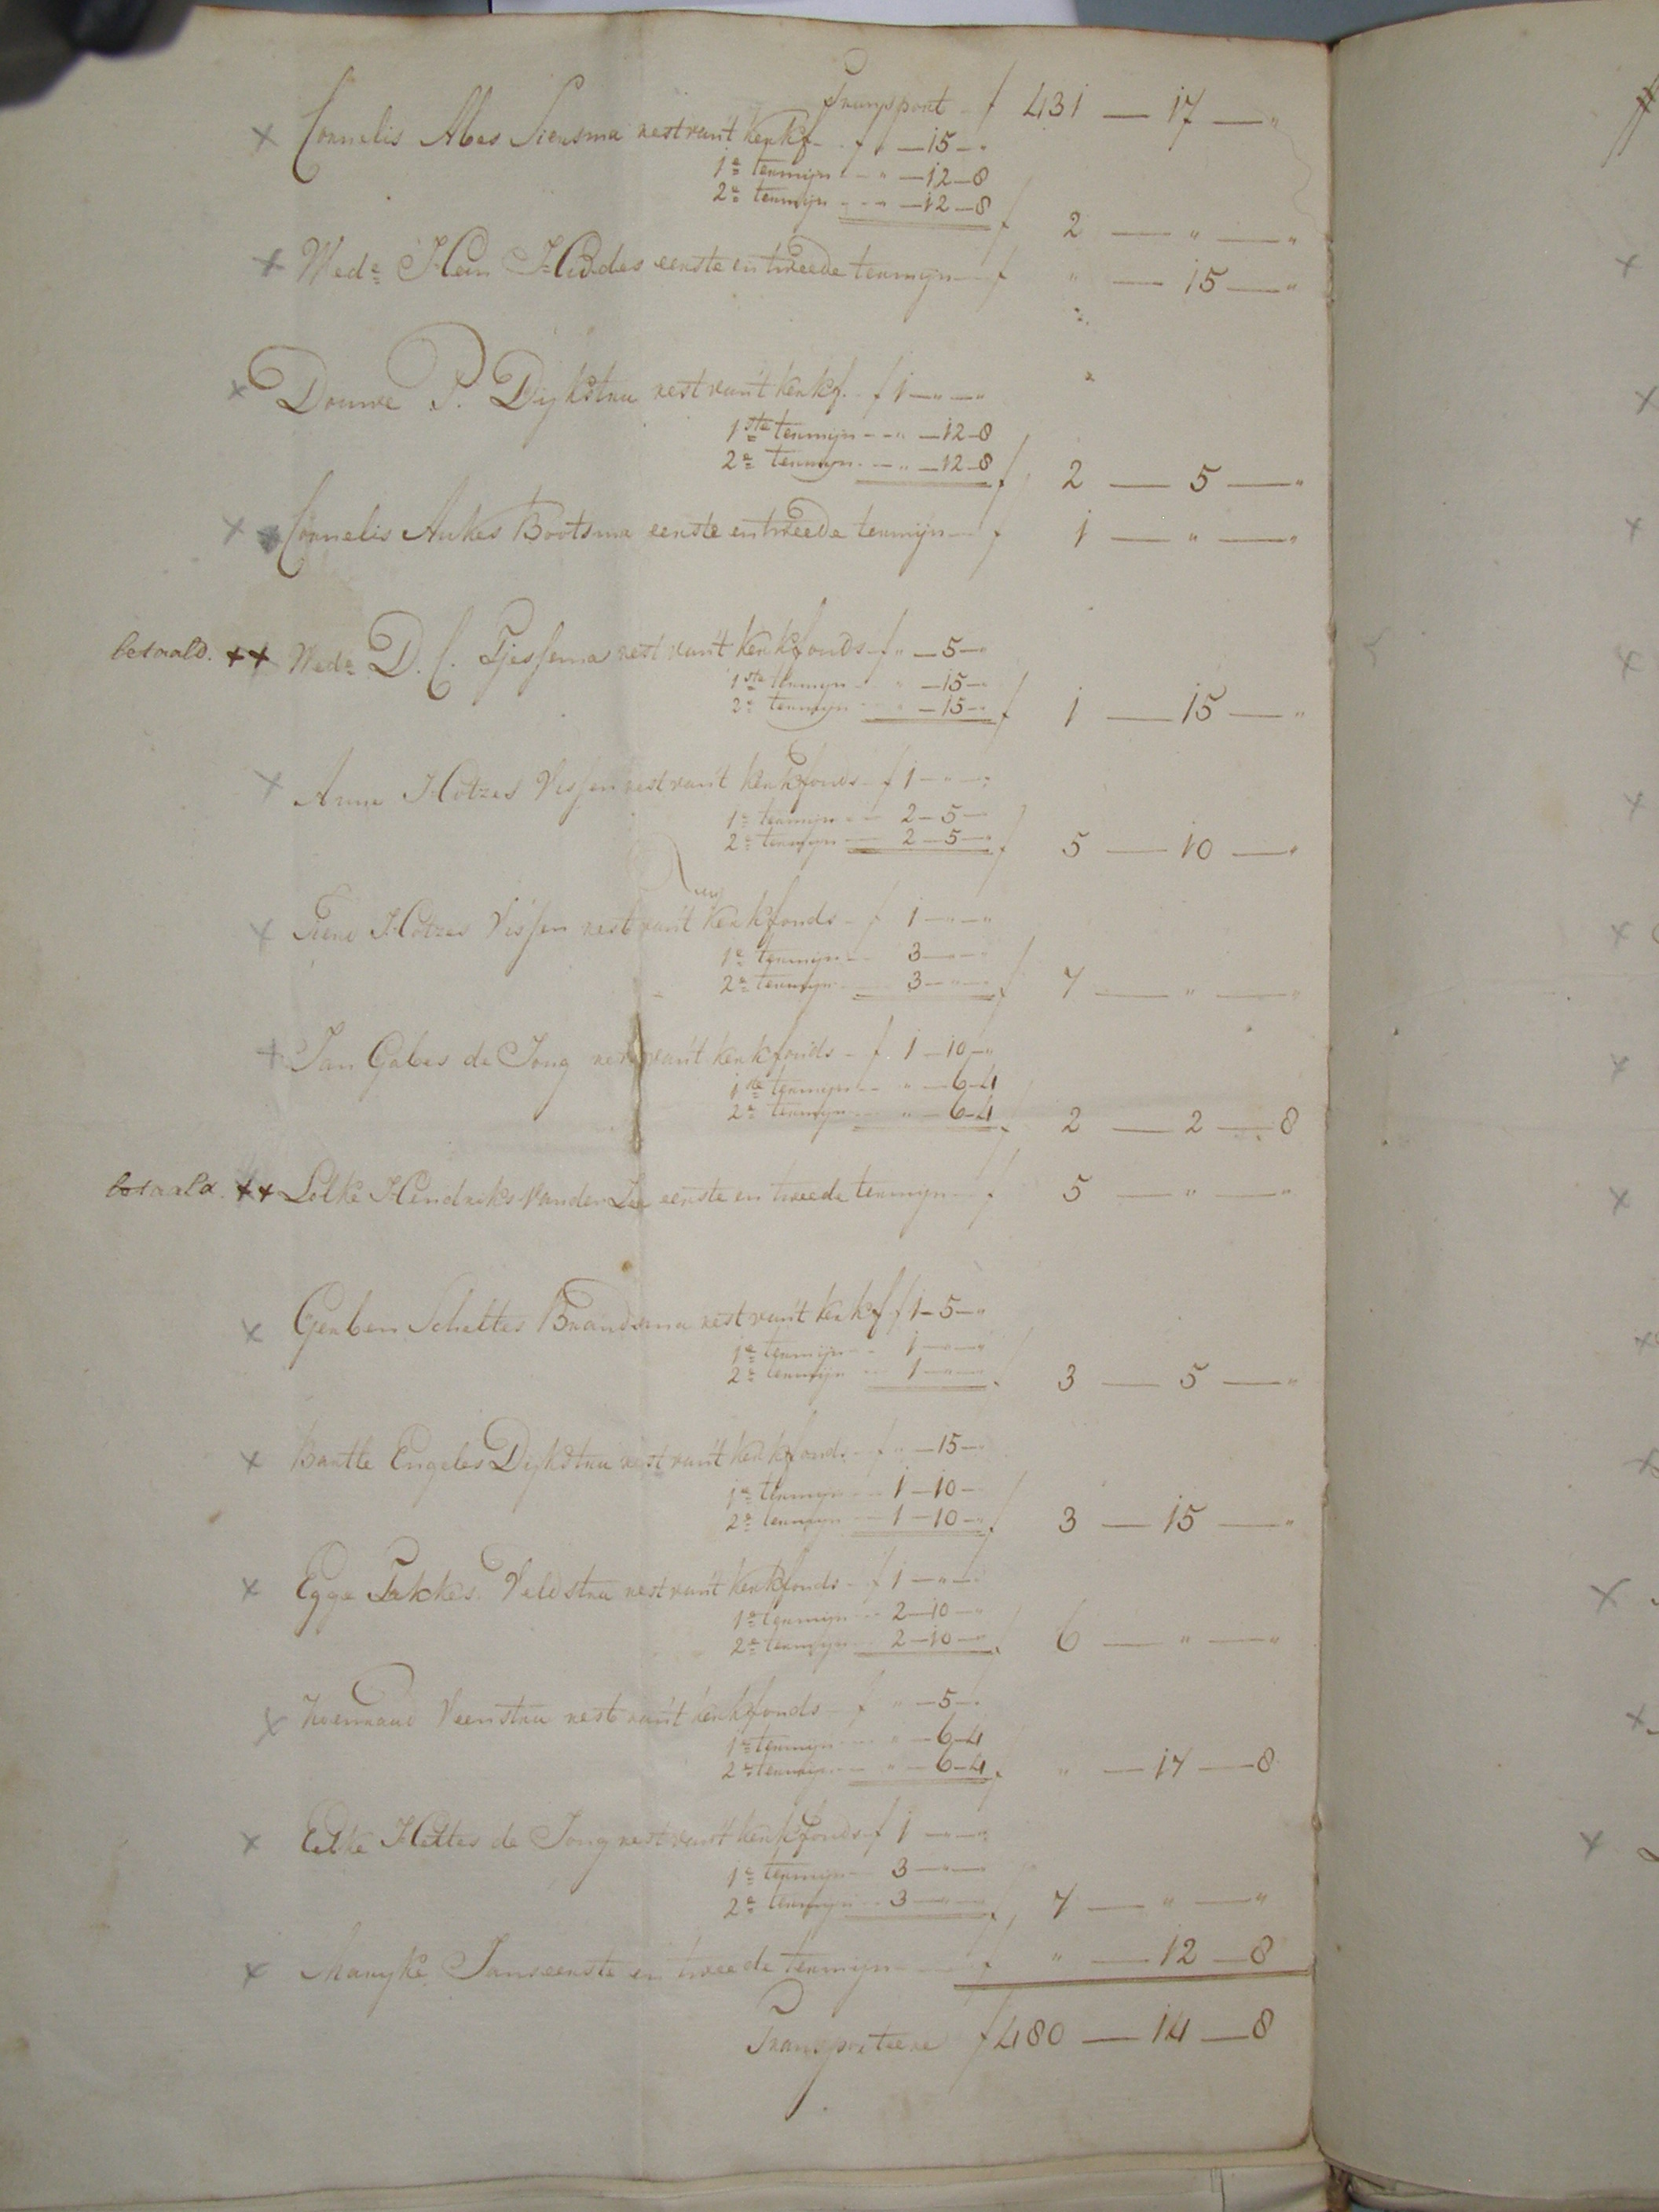 Transport f 431 — 17 — "
× Cornelis Abes Siersma rest van't kerkf. f " — 15 — "
1e termijn " — 12 — 8
2e termijn " — 12 — 8 f 2 — " — "
× Wede Hein Hiddes eerste en tweede termijn f " — 15 — "
× Douwe P. Dijkstra rest van't kerkf. f 1 — " — "
1ste termijn " — 12 — 8
2e termijn " — 12 — 8 f 2 — 5 — "
× Cornelis Aukes Bootsma eerste en tweede termijn f 1 — " — "
betaald. ×× Wede D. C. Tjessema rest van't kerkfonds f " — 5 — "
1ste termijn " — 15 — "
2e termijn " — 15 — " f 1 — 15 — "
× Anne Hotzes Visser rest van't kerkfonds f 1 — " — "
1e termijn 2 — 5 — "
2e termijn 2 — 5 — " f 5 — 10 — "
× Hotzes Visser rest van't kerkfonds f 1 — " — "
1e termijn 3 — " — "
2e termijn 3 — " — " f 7 — " — "
× Jan Gabes de Jong rest van't kerkfonds f 1 — 10 — "
1ste termijn " — 6 — 4
2e termijn " — 6 — 4 f 2 — 2 — 8
betaald. ×× Lolke Hendriks vander Zee eerste en tweede termijn f 5 — " — "
× Gerben Scheltes Brandsma rest van't kerkf f 1 — 5 — "
1e termijn 1 — " — "
2e termijn 1 — " — " f 3 — 5 — "
× Bartle Engeles Dijkstra rest van't kerkfonds f " — 15 — "
1e termijn 1 — 10 — "
2e termijn 1 — 10 — " f 3 — 15 — "
× Egge Fekkes Veldstra rest van't kerkfonds f 1 — " — "
1e termijn 2 — 10 — "
2e termijn 2 — 10 — " f 6 — " — "
× Koenraad Veenstra rest van't kerkfonds f " — 5 — "
1e termijn " — 6 — 4
2e termijn " — 6 — 4 f " — 17 — 8
× Eelke Heltes de Jong rest van't kerkfonds f 1 — " — "
1e termijn 3 — " — "
2e termijn 3 — " — " f 7 — " — "
× Marijke Jans eerste en tweede termijn f " — 12 — 8
Transporteere f 480 — 14 — 8